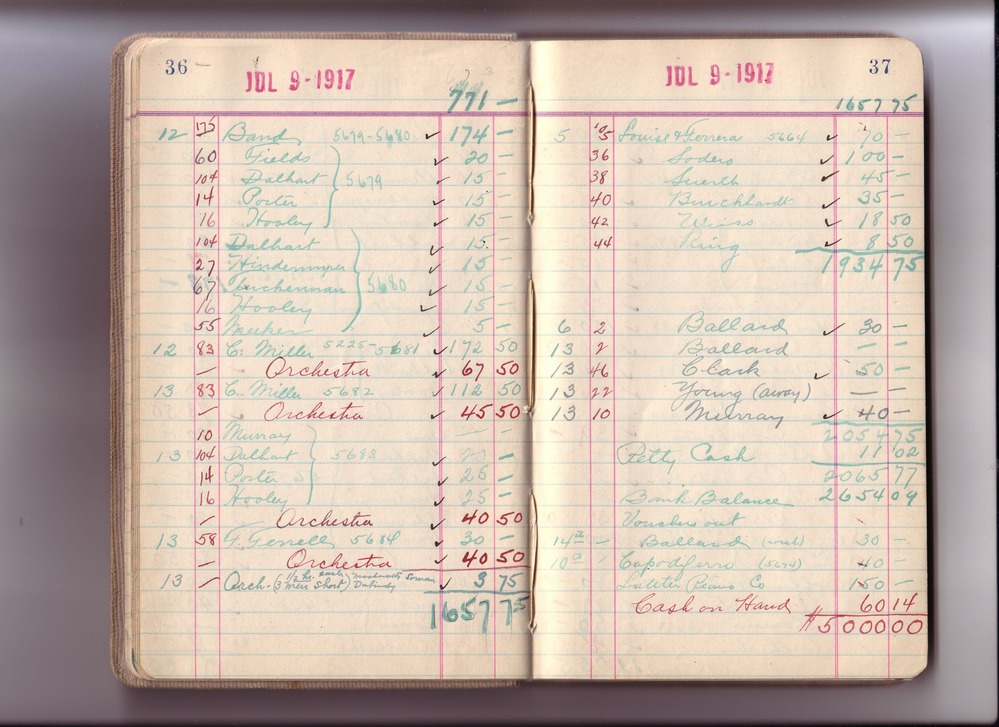 36
JUL 9-1917
771 —
12 175 Band 5679-5680 ✓ 174 —
60 Fields ✓ 20 —
104 Dalhart 5679 ✓ 15 —
14 Porter ✓ 15 —
16 Hooley ✓ 15 —
104 Dalhart ✓ 15 —
27 ✓ 15 —
67 Tuckerman 5680 ✓ 15 —
16 Hooley ✓ 15 —
55 Meeker 5 —
12 83 C. Miller 5225-5681 ✓ 172 50
— Orchestra ✓ 67 50
13 83 C. Miller 5682 ✓ 112 50
— Orchestra ✓ 45 50
10 Murray — —
13 104 Dalhart 5683 ✓ 20 —
14 Porter ✓ 25 —
16 Hooley ✓ 25 —
— Orchestra ✓ 40 50
13 58 F. Ferrell 5684 ✓ 30 —
— Orchestra ✓ 40 50
13 — Orch. (3 men short) 1/2 hr. ✓ 3 75
1657 75
37
JUL 9-1917
1657 75
5 105 Louise & Ferrera 5664 ✓ 70 —
36 Sodero ✓ 100 —
38 Suerth ✓ 45 —
40 Burckhardt ✓ 35 —
42 Weiss ✓ 18 50
44 King ✓ 8 50
1934 75
6 2 Ballard ✓ 30 —
13 2 Ballard — —
13 46 E Clark ✓ 50 —
13 22 Young (away) — —
13 10 Murray ✓ 40 —
2054 75
Petty Cash 11 02
2065 77
Bank Balance 2654 09
Vouchers out
14th — Ballard 30 —
10th — Capodiferro (5674) 40 —
Piano Co 150 —
Cash on Hand 60 14
$5000 00